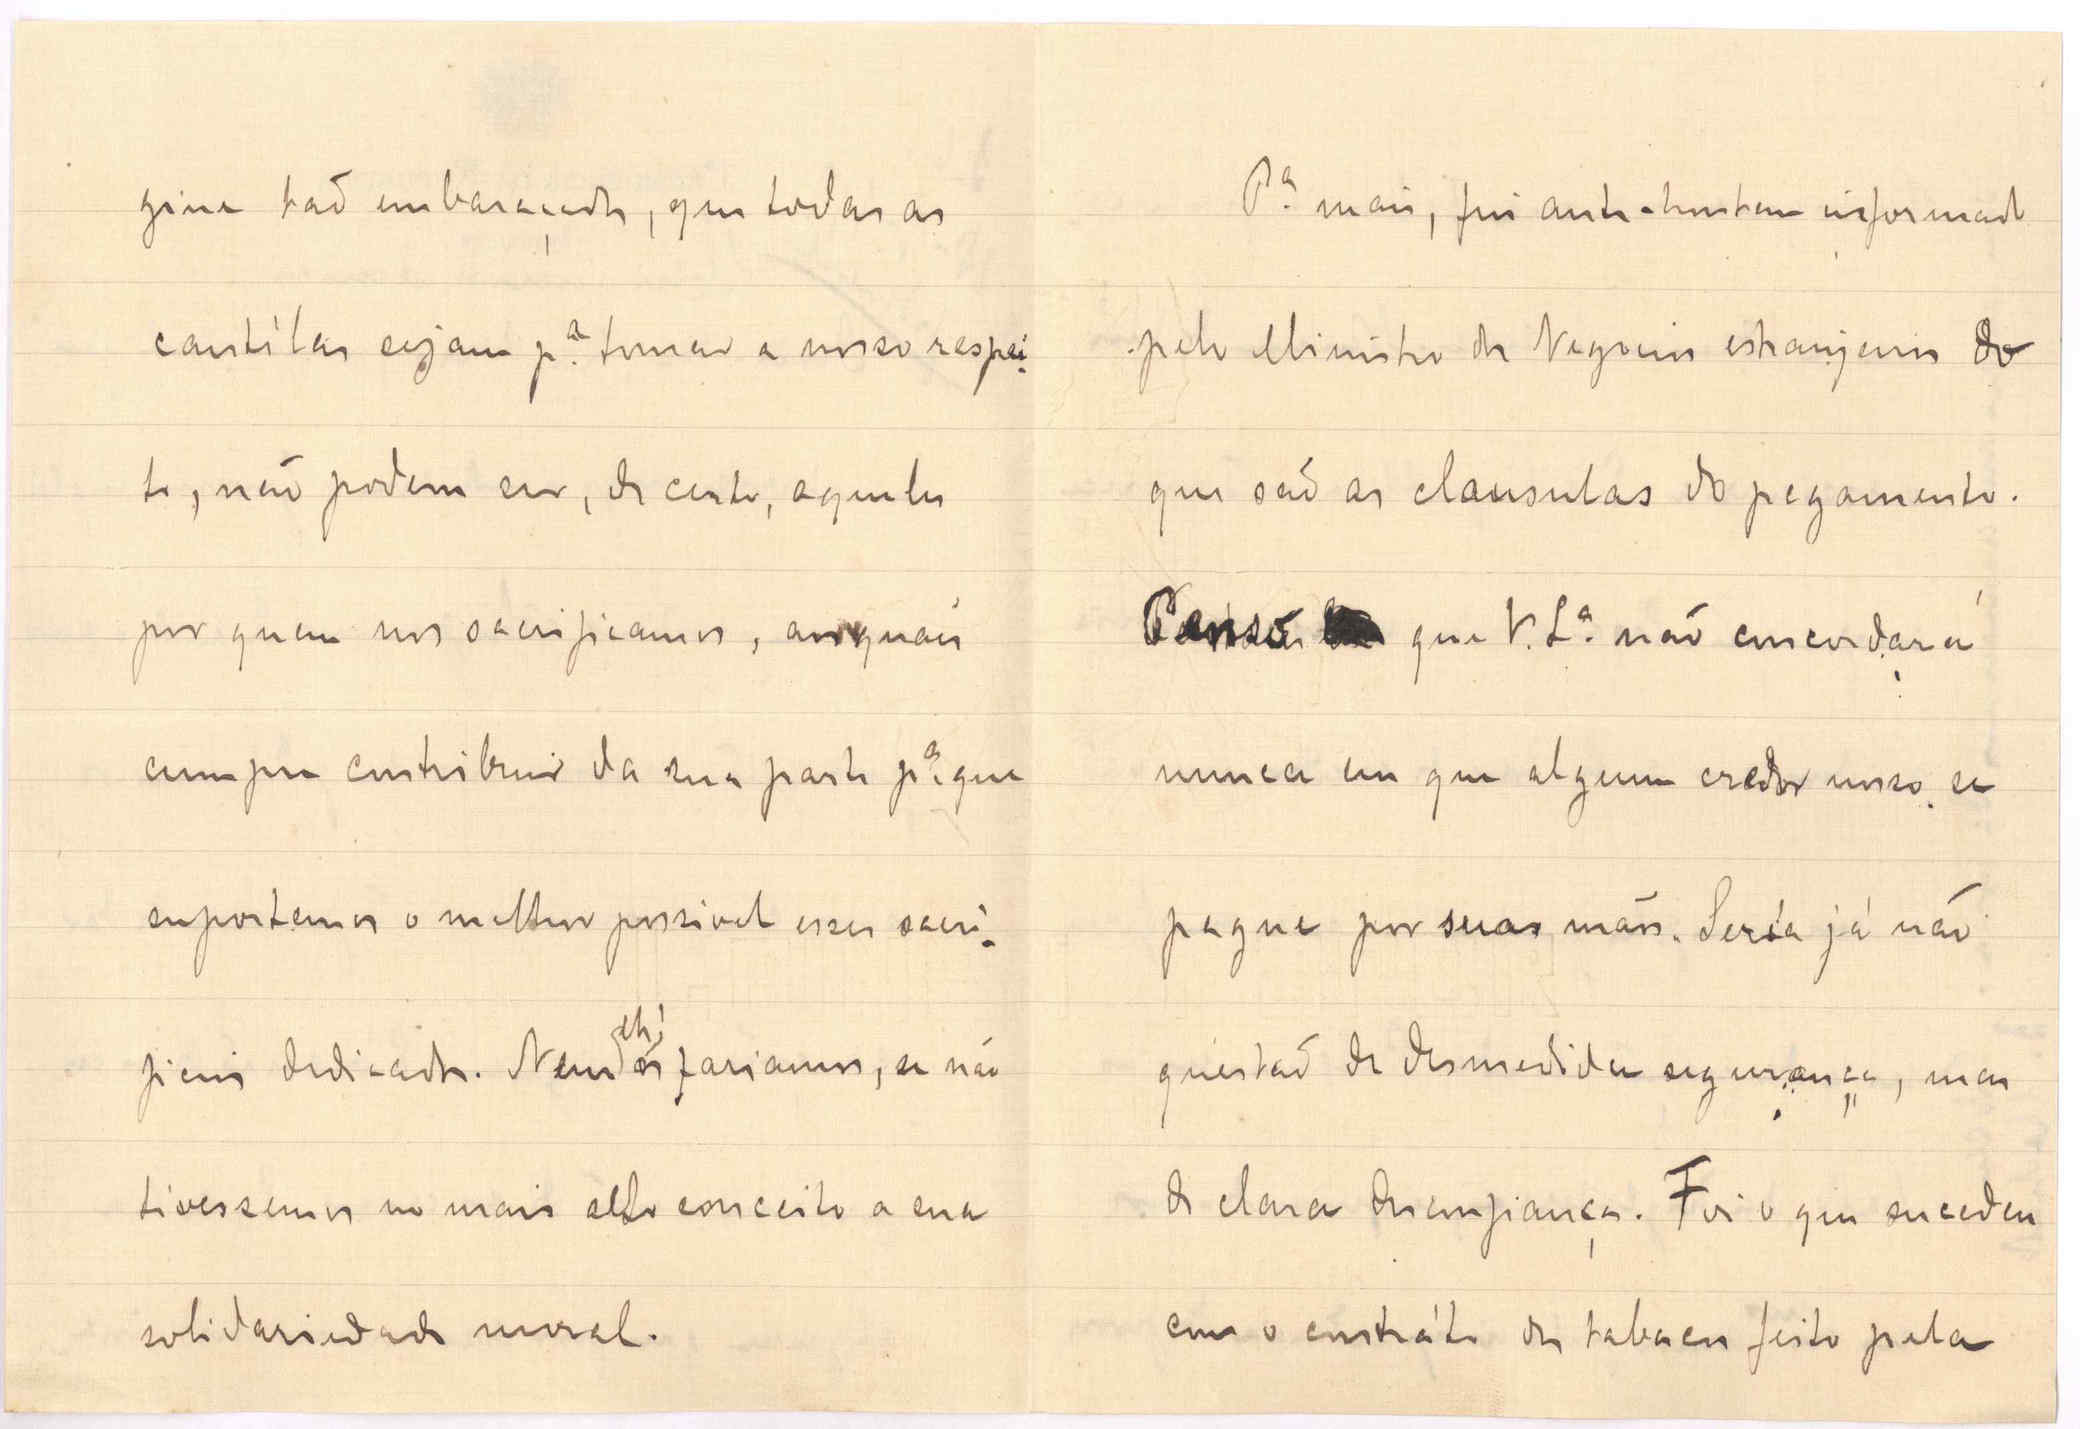 gine tão embaraçados, que todas as
cautélas sejam p.ª tomar a nosso respei-
to, não podem ser, de certo, aqueles
por quem nos sacrificamos, aos quais
cumpre contribuir da sua parte p.ª que
suportemos o melhor possivel esses sacri-
ficios dedicados. Nem os fariamos, se não
tivessemos no mais alto conceito a sua
solidariedade moral.
P.ª mais, fui ante-hontem informado
pelo Ministro dos Negocios estranjeiros do
que são as clausulas do pagamento.
Penso que V. S.ª não concordará
nunca em que algum credor nosso se
pague por suas mãos. Seria já não
questão de desmedida segurança, mas
de clara desconfiança. Foi o que sucedeu
com o contráto dos tabacos feito pela